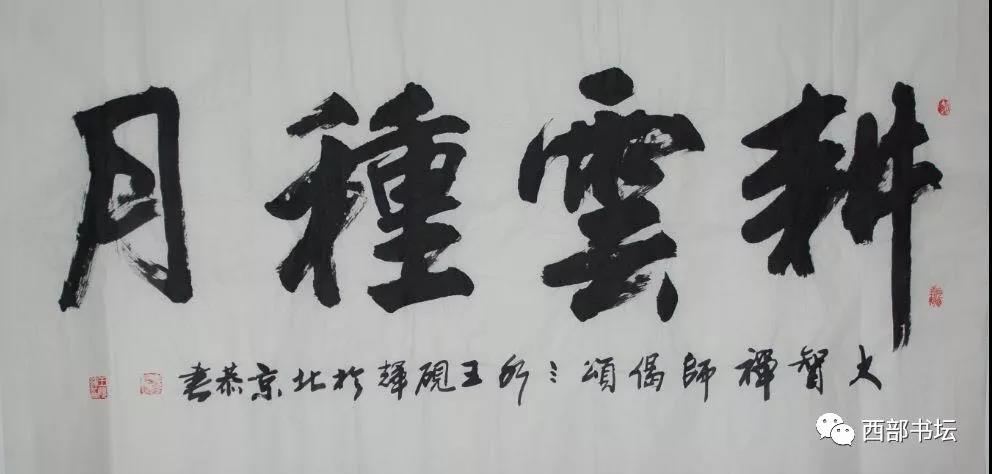 耕雲種月
大智禪師偈頌 王硯輝於北京恭書
西部书坛